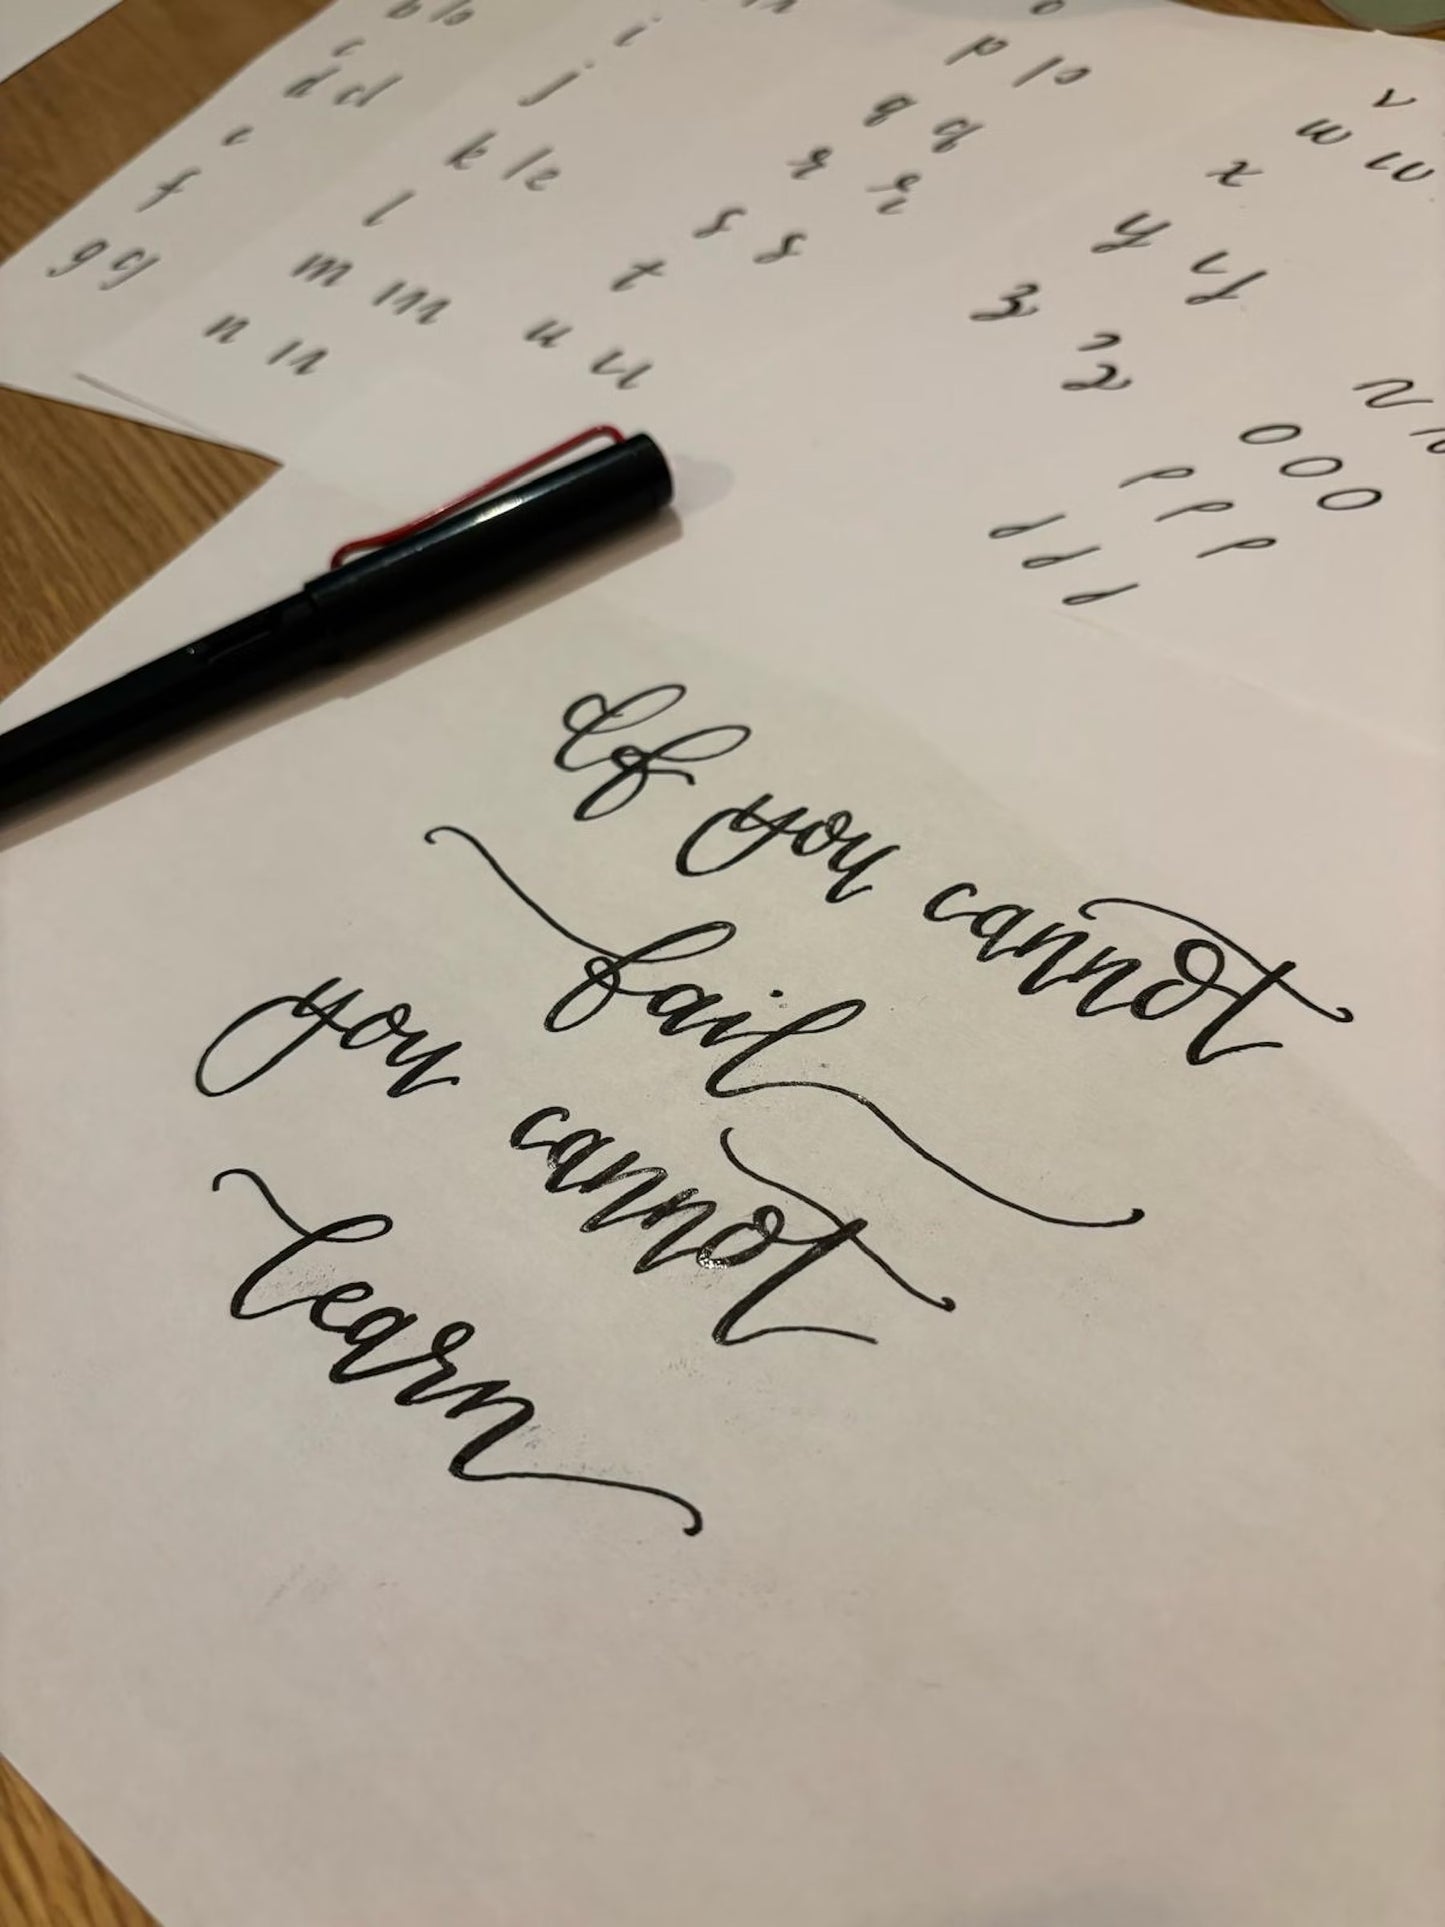 b b
c
d d
e
f
g g
i
j
k k
l
m m
n n
o
p p
q q
r r
s s
t
u u
v
w w
x
y y
z z
o o o
If you cannot
fail
you cannot
learn